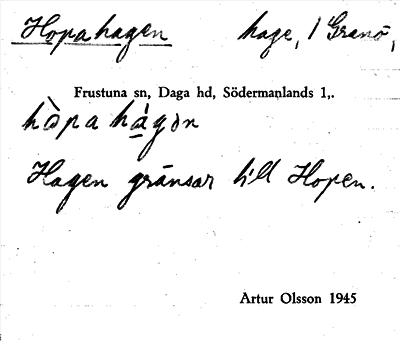 Hopahagen hage, 1 Granö,
Frustuna sn, Daga hd, Södermanlands l,.
hòpa hágən
Hagen gränsar till Hopen.
Artur Olsson 1945